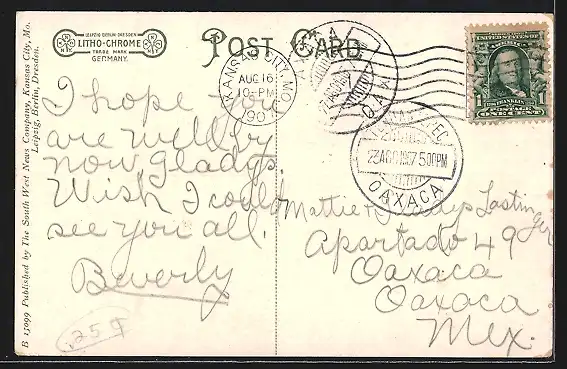 LEIPZIG BERLIN DRESDEN
LITHO-CHROME
TRADE MARK
GERMANY.
POST CARD
KANSAS CITY, MO.
AUG 16
10-PM
1907
UNITED STATES
FRANKLIN
POSTAGE
ONE CENT
22 AGO 1907 5 00PM
OAXACA
I hope you
are well by
now Gladys.
Wish I could
see you all.
Beverly
25¢
Mattie & Gladys Lastinger
Apartado 49
Oaxaca
Oaxaca
Mex.
B 15099 Published by The South West News Company, Kansas City, Mo.
Leipzig, Berlin, Dresden.